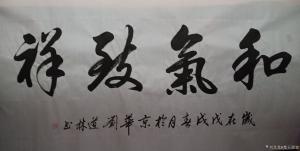 和氣致祥
歲在戊戌春月於京華劉道林書